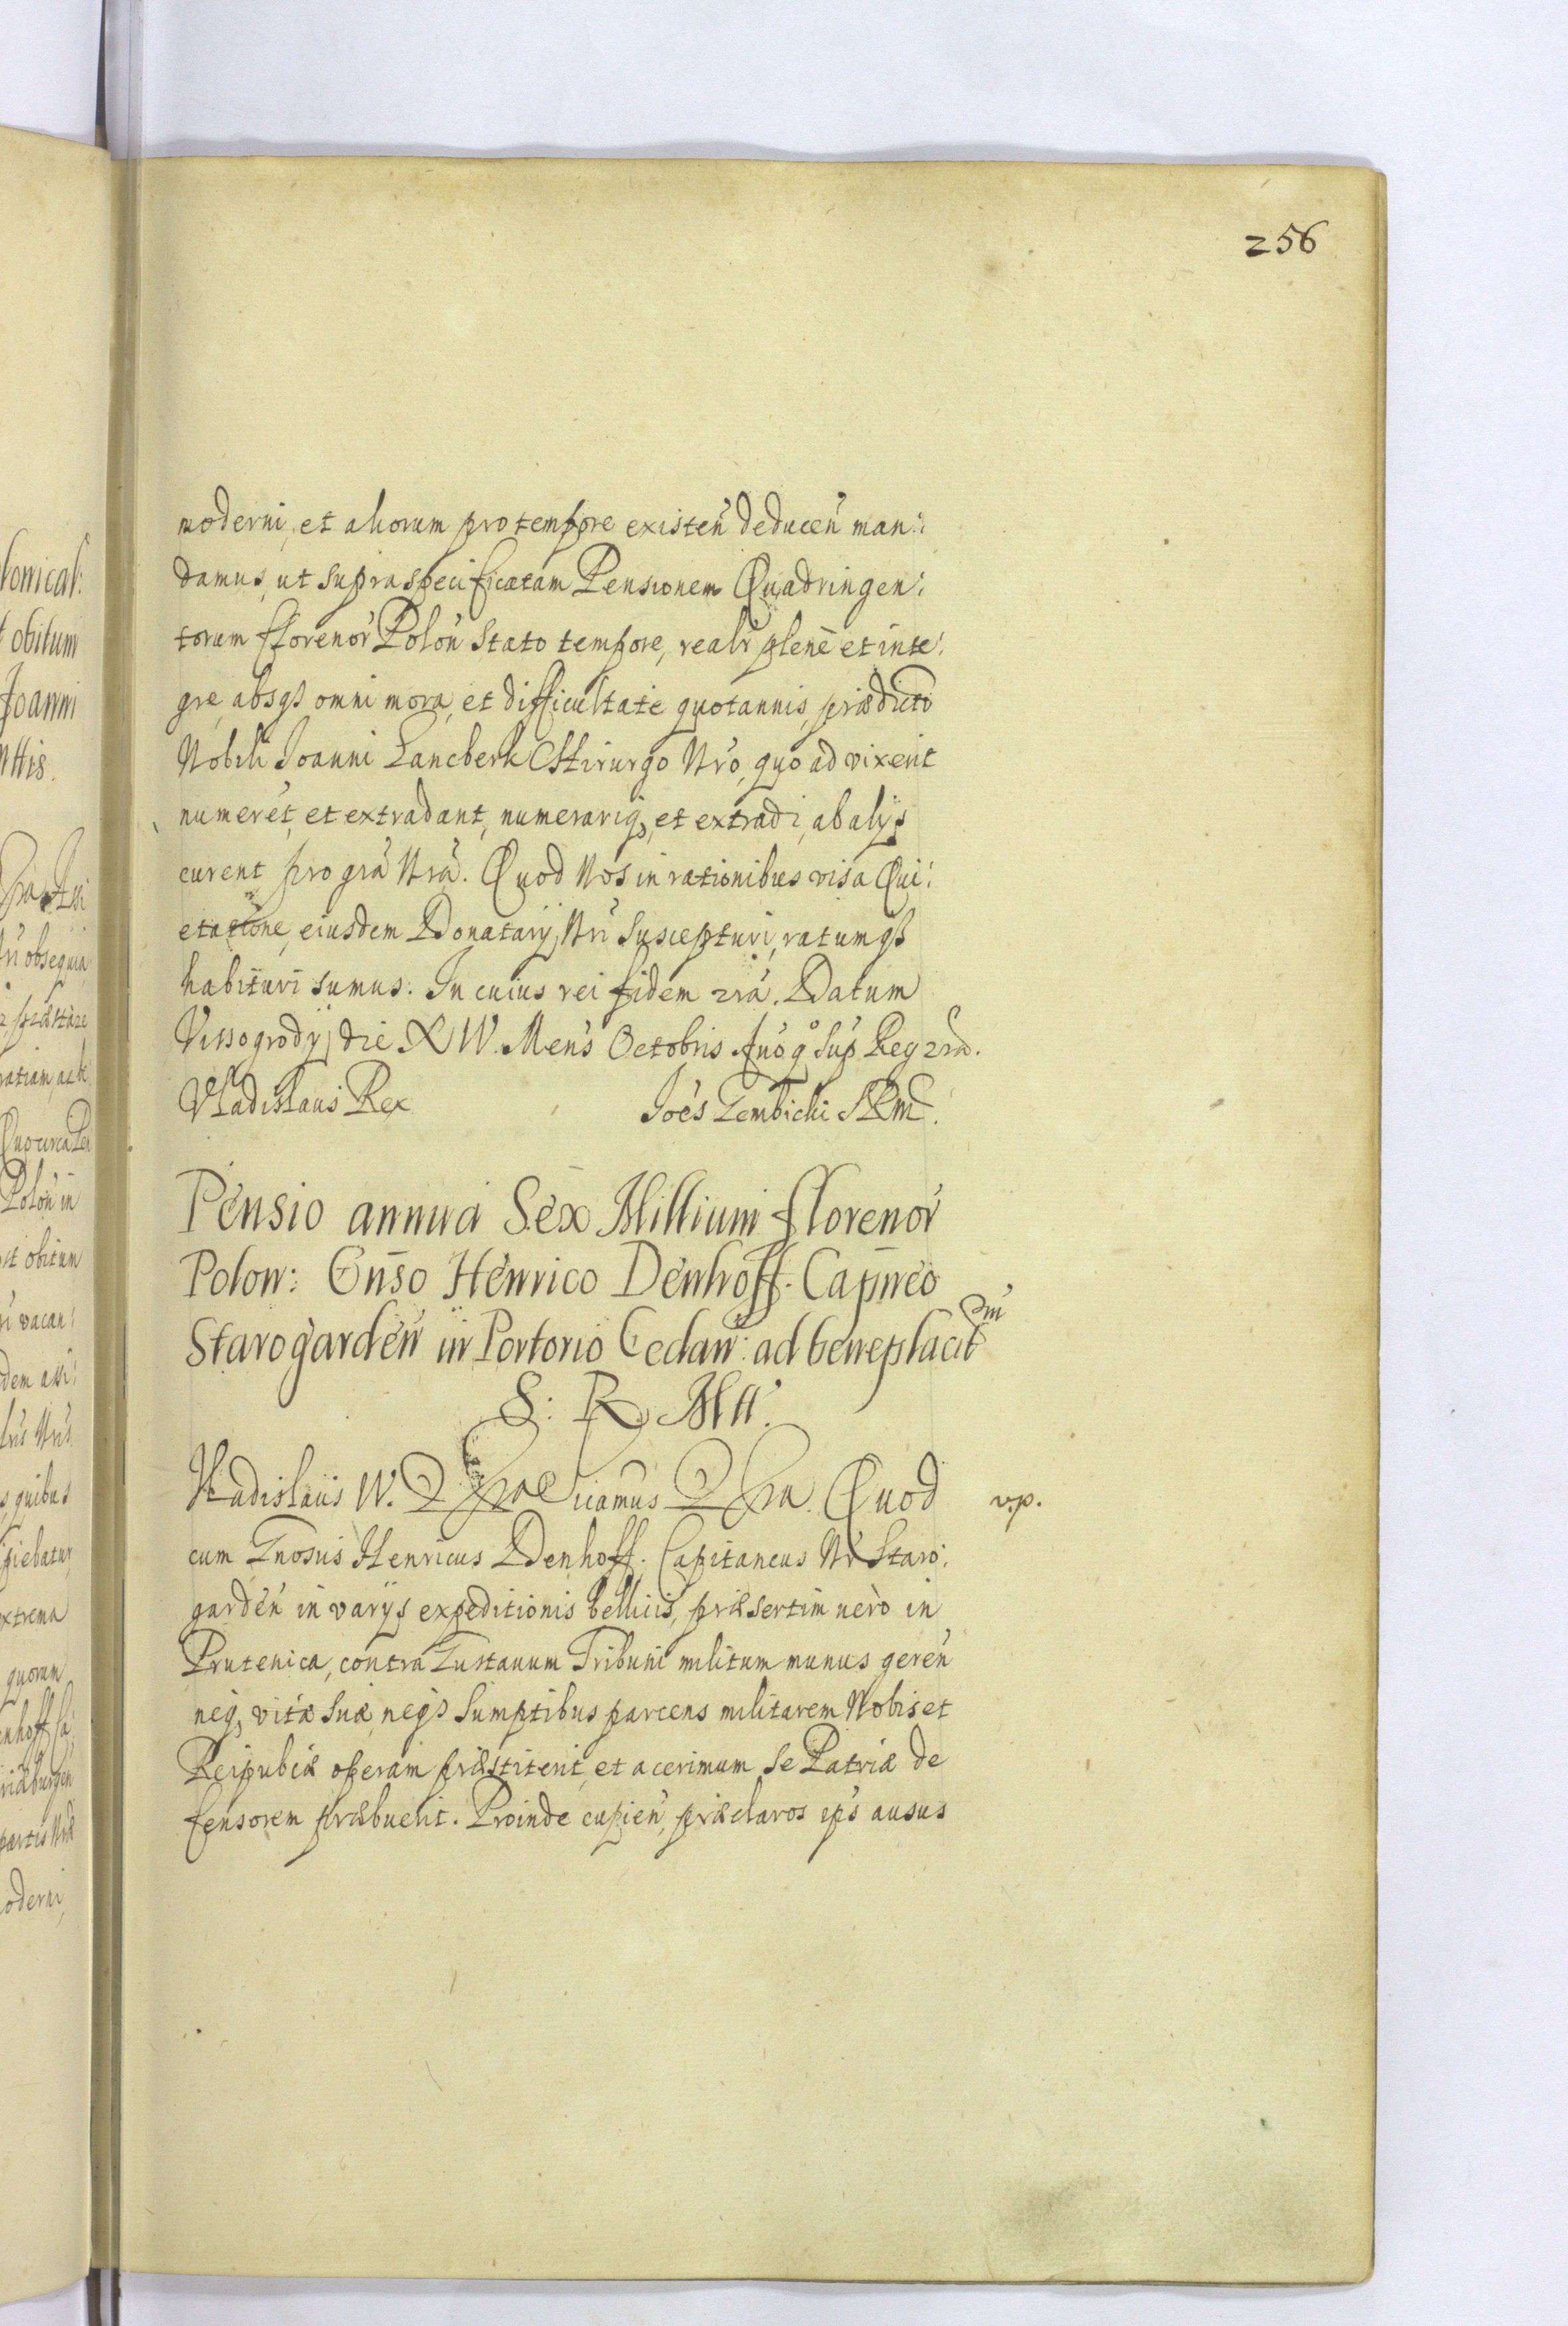 256
moderni, et aliorum pro tempore existeń deduceń man:
damus, ut supraspecificatam Pensionem Quadringen:
torum fflorenor̓ Polon̓ stato tempore, realr̓ plenè et inte:
gre, absq3 omni mora, et difficultate quotannis, prædicto
Nobili Joanni Lancberk Chirurgo Nr̓o, quo ad vixerit
numerét, et extradant, numerariq3, et extradi, ab alijs
curent, pro grã Nrã. Quod Nos in rationibus visa Qui:
etatione, eiusdem Donatarij Nr̓i suscepturi, ratumq3
habituri sumus. In cuius rei fidem 2rã. Datum
Vissogrodij die XIV. Men̓s Octobris Añ̓o q̊ sup̓ Reg 2rũ.
Vladislaus Rex
Joe̓s Lembicki SRM.
Pensio annua Sex Millium florenor̓
Polon: Gñso Henrico Denhoff. Capñeo
Starogarden̓ in Portorio Gedan̓: ad beneplacit
um̓
S: R. Mtt.
Vladislaus IV. 2 Sig camus 2 Sra. Quod
v.p.
cum Gnosus Henricus Denhoff. Capitaneus Nr̓ Staro:
garden̓ in varijs expeditionis bellicis, præsertim uerò in
Prutenica, contra Gustauum Tribuni militum munus geren̓
neq3 vitæ suæ, neq3 sumptibus parcens militarem Nobis et
Reipubcæ operam præstiterit, et acerimum se Patriæ de
fensorem præbuerit. Proinde cupien̓, præclaros ip̓s ausus
lonical:
t obitum
Joanni
ratiam, ac b
Polon̓ in
it obitum
ri vacan:
s, quibus
ipiebatur
xtrema
quorum
oderni,